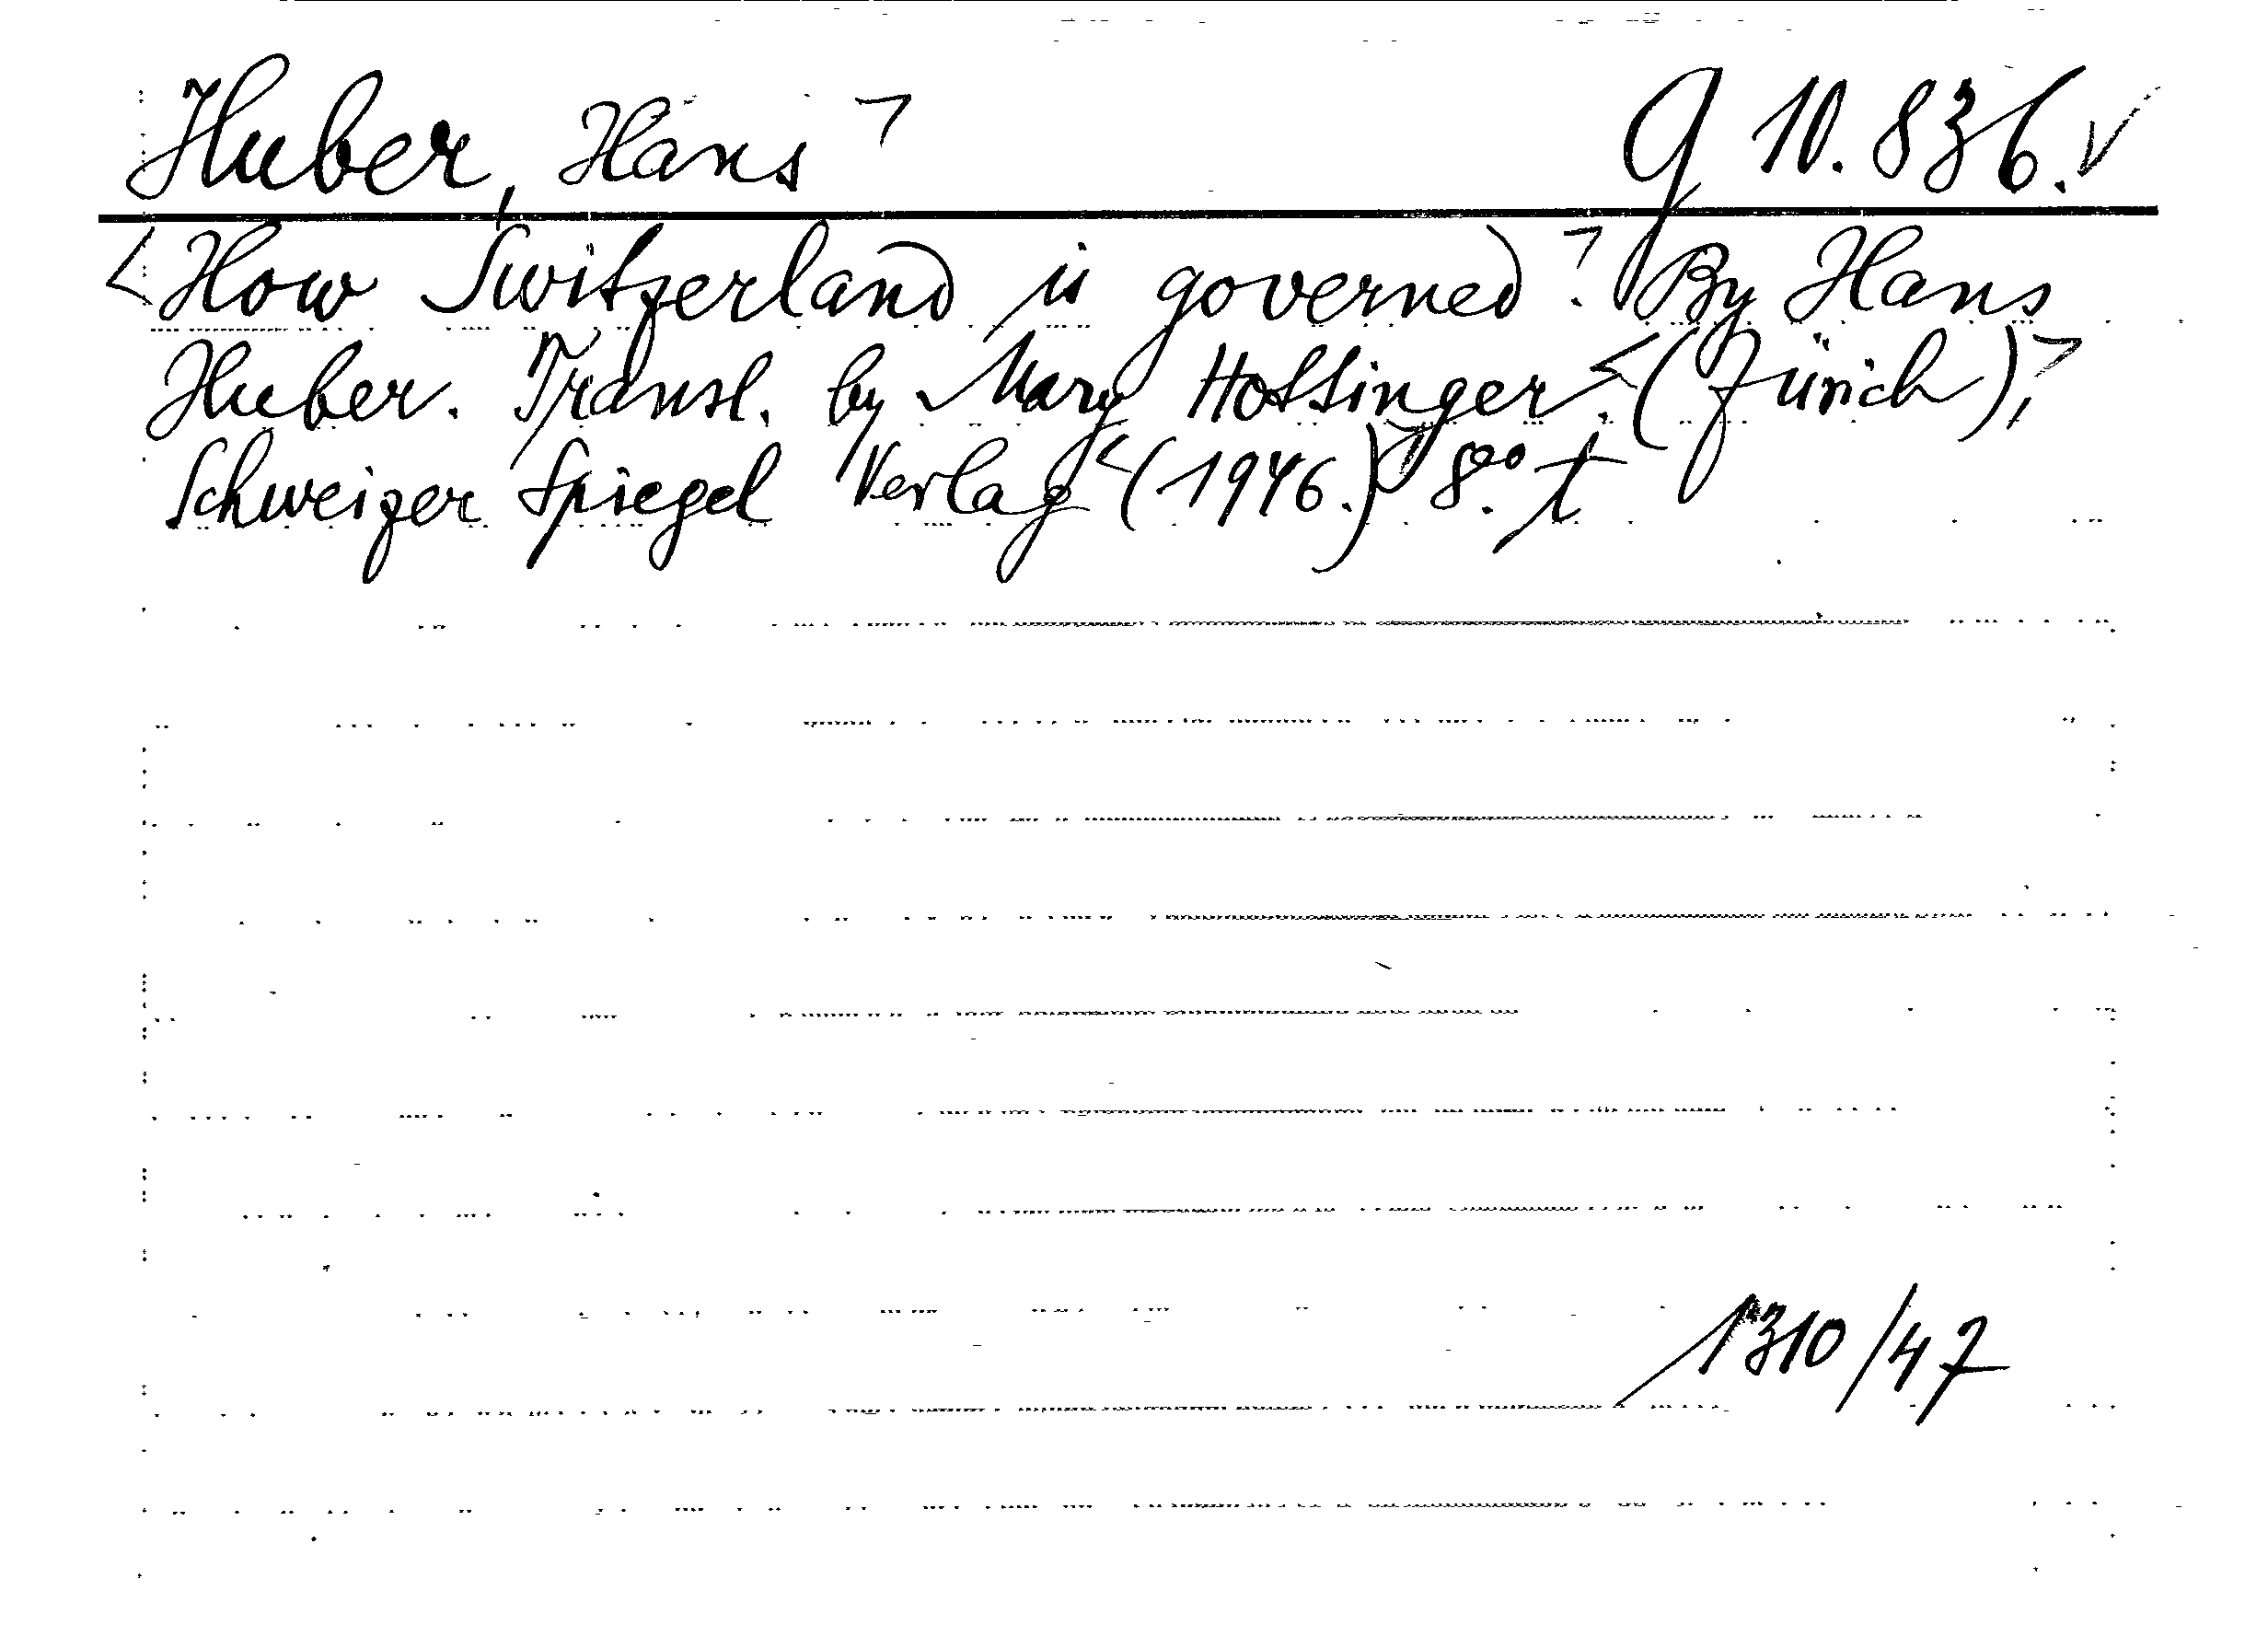 Huber, Hans ⌝ G 10.836. √
<How Switzerland is governed⌝. By Hans
Huber. Transl. by Mary Hottinger. <(Zürich),⌝
Schweizer Spiegel Verlag <(1946.)⌝ 8°. t
1310/47